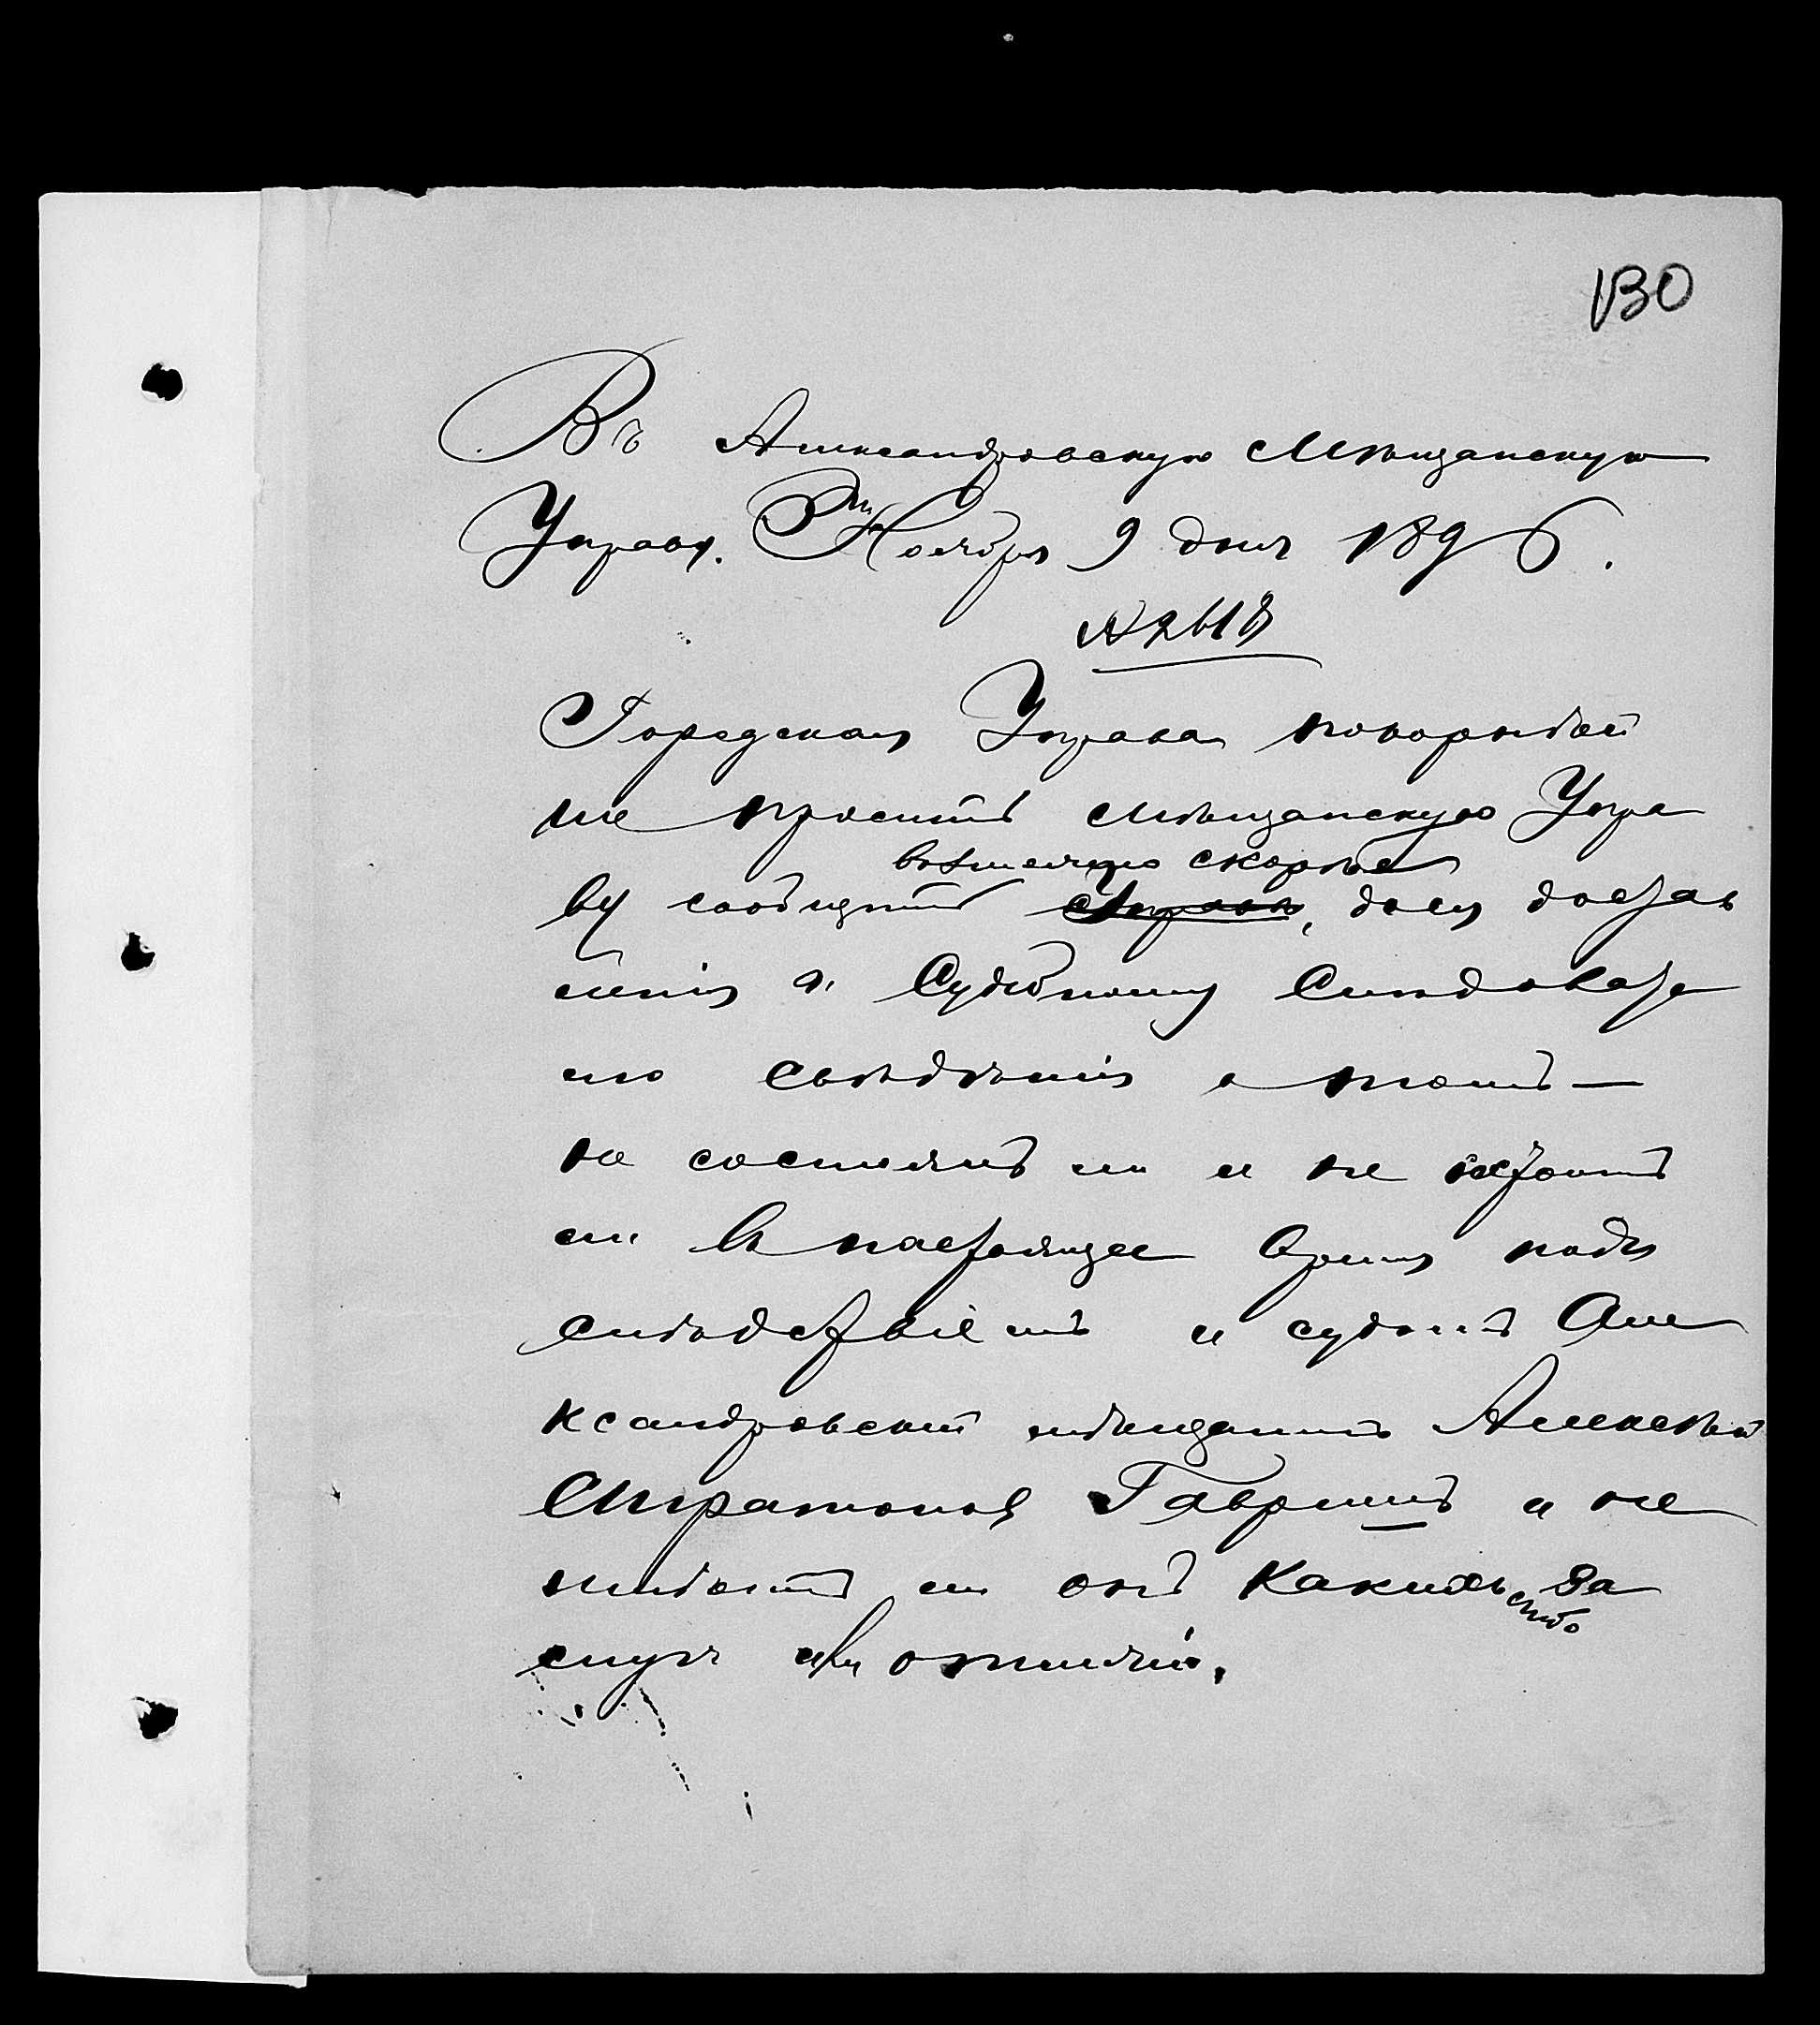 130
Въ Александровскую Мѣщанскую
Управу. Ноября 9 дня 1896.
№ 2618
Городская Управа покорнѣй
ше проситъ Мѣщанскую Упра
возможно скорѣе
ву сообщить Управѣ, для достав
ленія г. Судебному Слѣдовате
лю свѣдѣнія о томъ—
не состоялъ ли и не состоитъ
ли въ настоящее время подъ
слѣдствіемъ и судомъ Але
ксандровскій мѣщанинъ Алексѣй
Стратоновъ Гавришъ и не
имѣетъ ли онъ какихъ За
либо
слугъ или отличій.